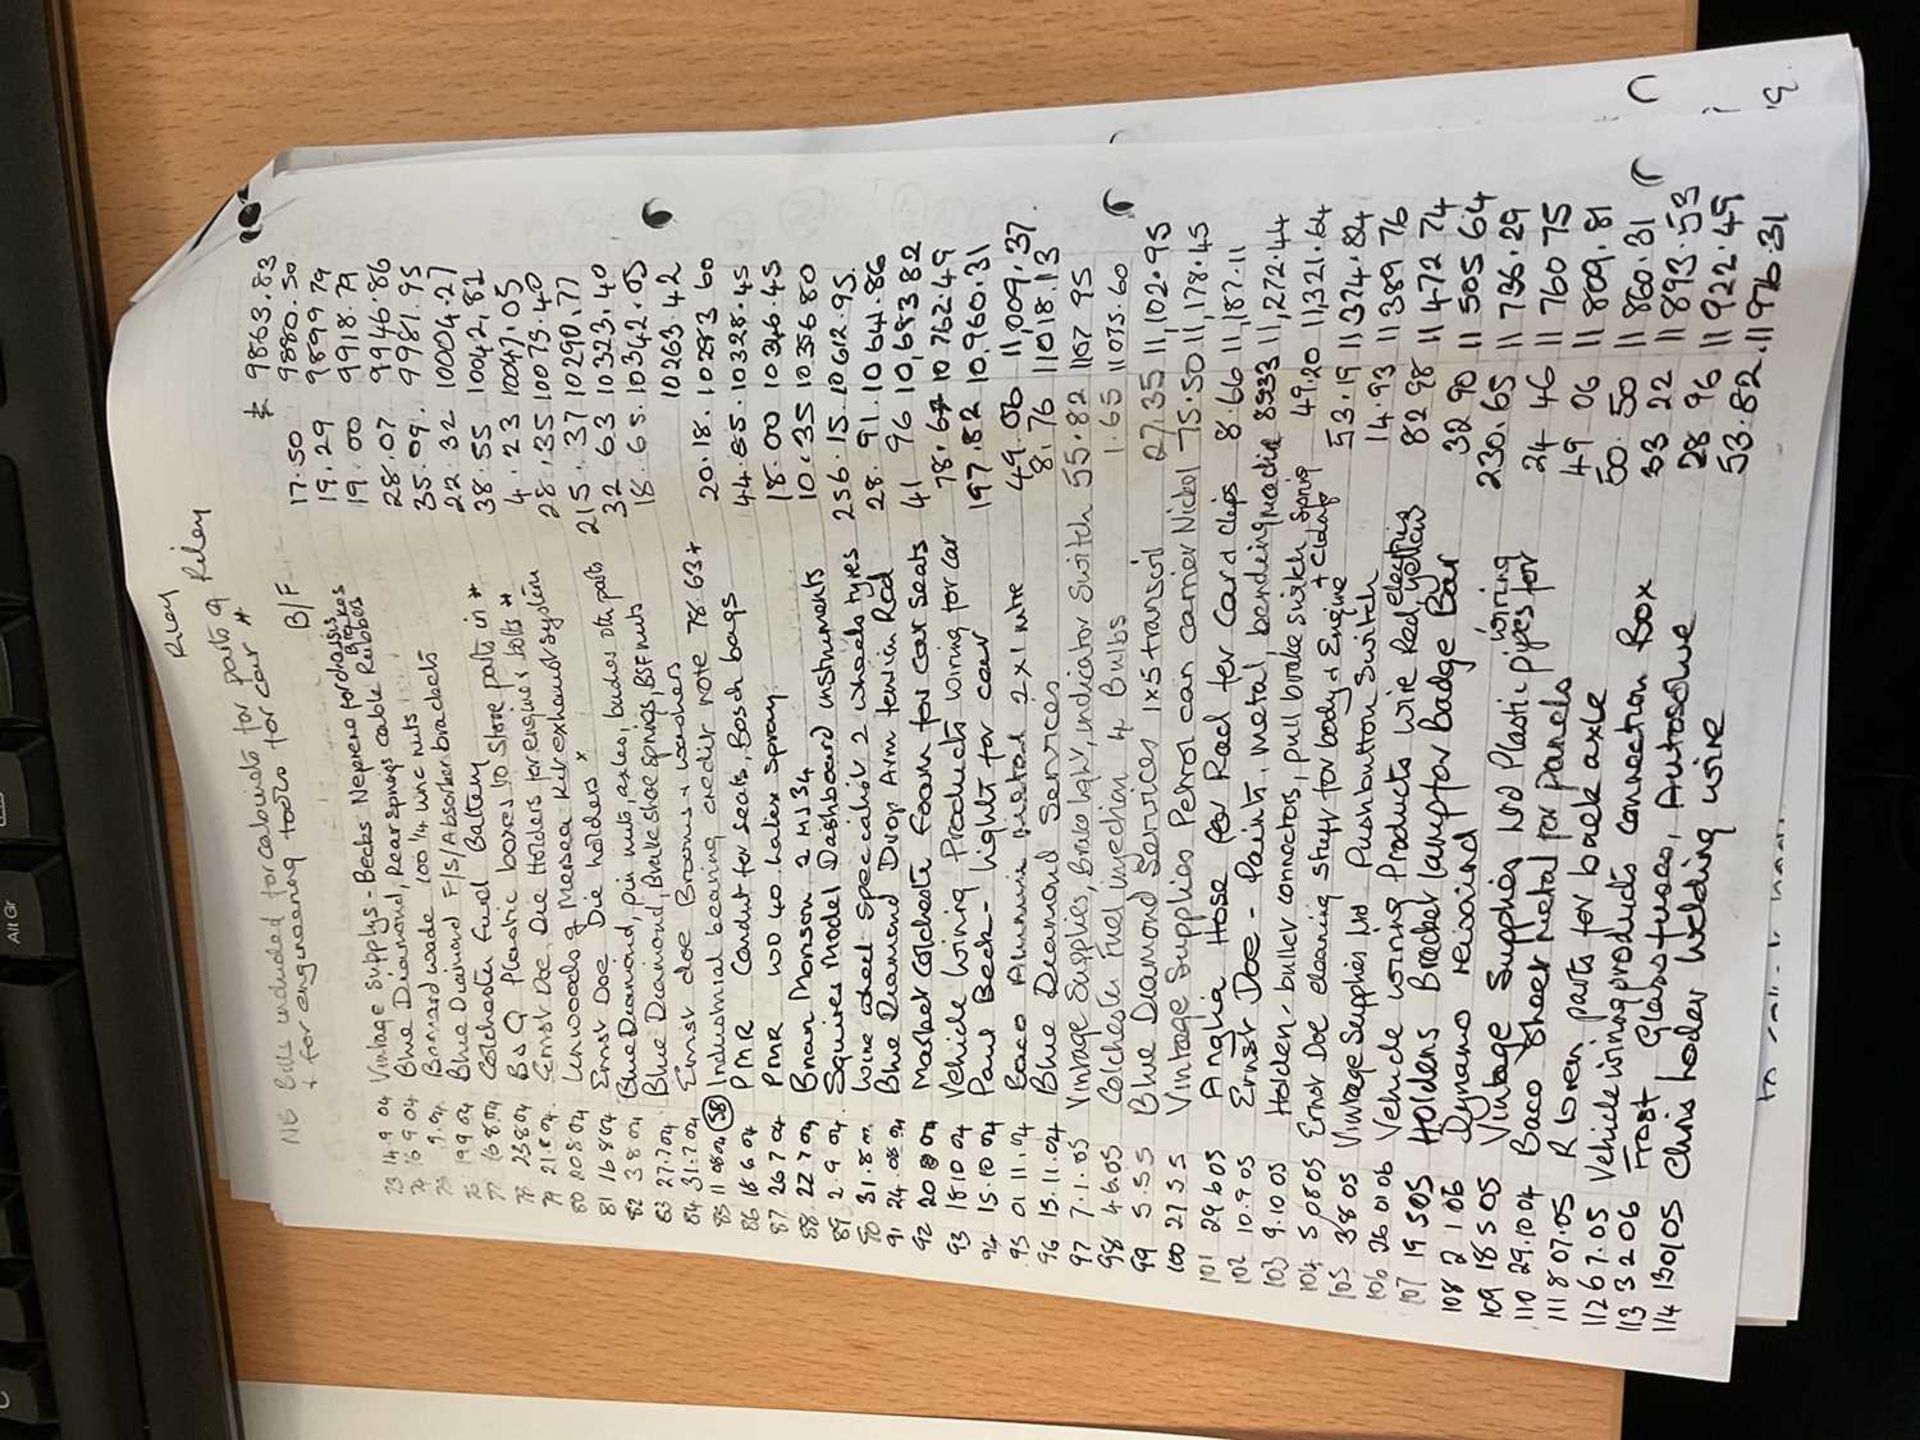 Riley
NB Bills included for cabinets for parts of Riley
+ for engineering tools for car *
B/F £ 9863.83
17.50 9880.50
73 14 9 04 Vintage Supplys - Becks Neprene for chassis Brakes 19.29 9899 79
74 16 9 04 Blue Diamond, Rear springs cable Rubbers 19.00 9918.79
75 9.04 Bonnard wade 100 1/4 unc nuts 28.07 9946.86
76 19 9 04 Blue Diamond F/S/Absorber brackets 35.09. 9981.95
77 16 8 04 Colchester Fuel Battery 22.32 10004.27
78 25 8 04 B & Q Plastic boxes to store parts in * 38.55 10042,82
79 21.8 04. Ernst Doe. Die Holders for engine bolts * 4.23 10047.05
80 20 8 04 Lenwoods of Mersea Kit exhaust system 28.35 10075.40
81 16 8 04 Ernst Doe Die holders * 215.37 10290.77
82 3 8 04 Blue Diamond, pin nuts, axles, bushes oth parts 32 63 10323.40
83 27.7.04 Blue Diamond, Brake shoe springs, BSF nuts 18.65.10342.05
84 31.7 04 Ernst doe Brooms + washers
85 11 08 04 (58) Industrial bearing credit note 78.63 + 10263.42
86 18 6 04 PMR Conduit for seats, Bosch bags 20.18.10283 60
87 26 7 04 PMR WD 40 halex spray 44.85.10328.45
88 22 7 04 Brian Monson 2 MS 34 18.00 10346.45
89 2.9 04. Squires Model Dashboard instruments 10.35 10356 80
90 31.8 04 Wire wheel specialist 2 wheels tyres 256.15.10612.95.
91 24 08 04 Blue Diamond Drop Arm tension Rod 28.91.10641.86
92 20 8 04 Market Colchester Foam for car seats 41 96 10,683 82
93 18 10 04 Vehicle Wiring Products wiring for car 78.67 10762.49
94 15.10 04 Paul Beck - Light for car 197.82 10.960.31
95 01 11.04 Baco 2 x 1 metre 49.06 11,009.37
96 15.11.04 Blue Diamond Services 8.76 11018.13.
97 7.1.05 Vintage Supplies, Brake light, indicator Switch 55.82 1107 95
98 4 6.05 Colchester Fuel injection 4 Bulbs 1.65 11075.60
99 5.5 5 Blue Diamond Services 1x5 transoil 27.35 11,102.95
100 27 5 5 Vintage Supplies Petrol can carrier Nickel 75.50 11,178.45
101 29 6 05 Anglia Hose for Rad ter Card clips 8.66 11,187.11
102 10.9.05 Ernst Doe - Paint, metal, bending 8533 11,272.44
103 9.10 05 Holden - bullet connectors, pull brake switch spring 49.20 11,321.64
104 5,08 05 Ernst Doe cleaning stuff for body & Engine + clamp 53.19 11374.84
105 3 8 05 Vintage Supplies Ltd Pushbutton Switch 14.93 11389 76
106 26 01 06 Vehicle wiring Products Wire Red, yellow electric 82 98 11472 74
107 19 5 05 Holdens Bracket lamp for Badge Bar 32 90 11505 64
108 2 1 06 Dynamo rewind 230.65 11736.29
109 18 5 05 Vintage Supplies Ltd Plastic pipes for wiring 24 46 11760 75
110 29.10 04 Baco Sheet Metal for Panels 49 06 11809.81
111 8 07.05 parts for back axle 50.50 11860.31
112 6 7.05 Vehicle wiring products connection Box 33 22 11893.53
113 3 2 06 Frost Glass fuses, Autosolve 28 96 11922.49
114 130105 Chris hoder welding wire 53.82.11976.31